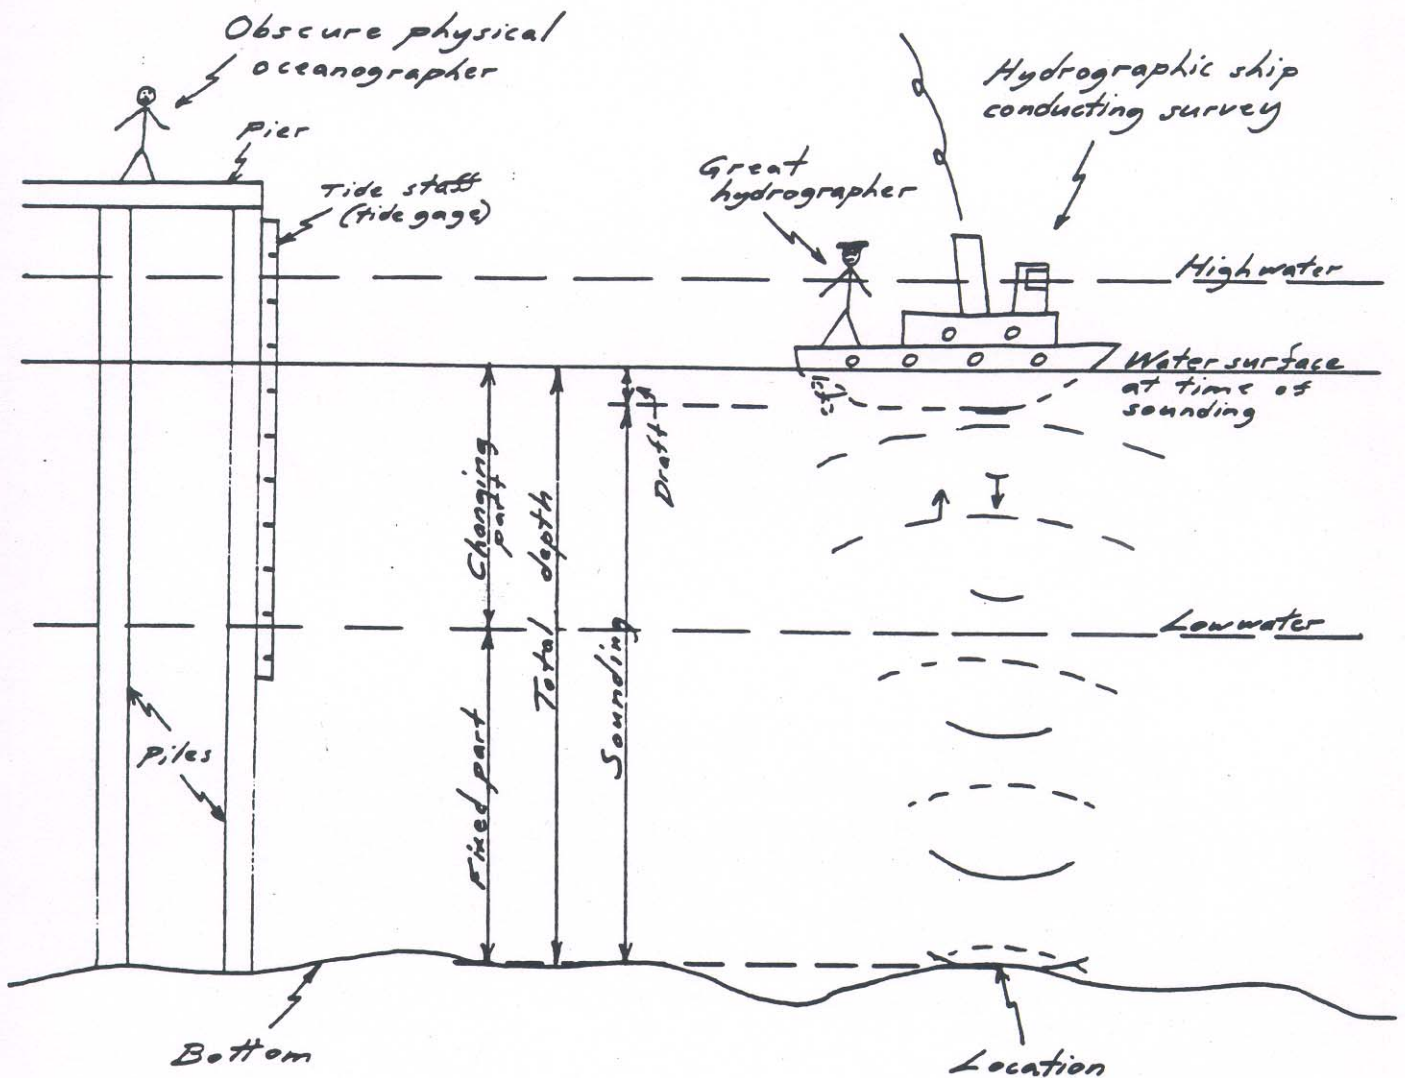 Obscure physical
oceanographer
Pier
Tide staff
(tide gage)
Hydrographic ship
conducting survey
Great
hydrographer
High water
Water surface
at time of
sounding
Draft
Changing
part
Total depth
Sounding
Low water
Fixed part
Piles
Bottom
Location